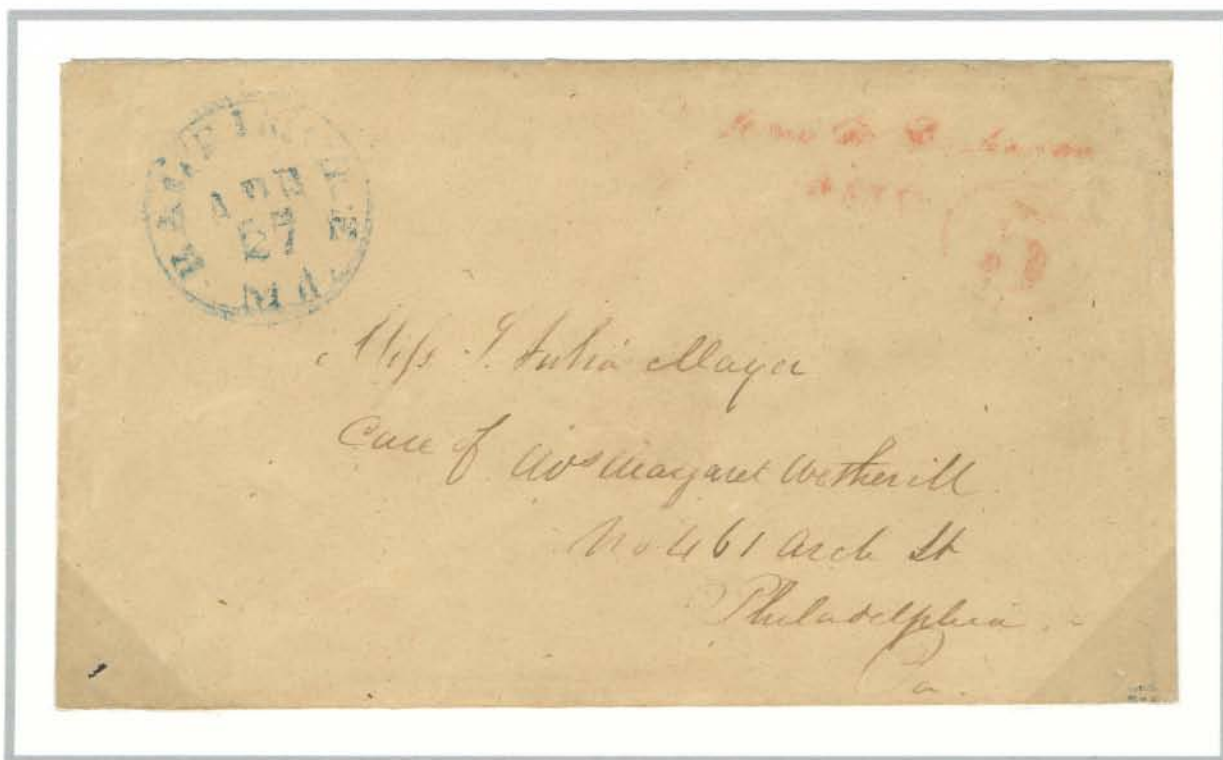 BALTIMORE
APR
27
MD.
5
Miſs I. Julia Mayer
Care of Mrs Margaret Wetherill
No 461 Arch St
Philadelphia
Pa.